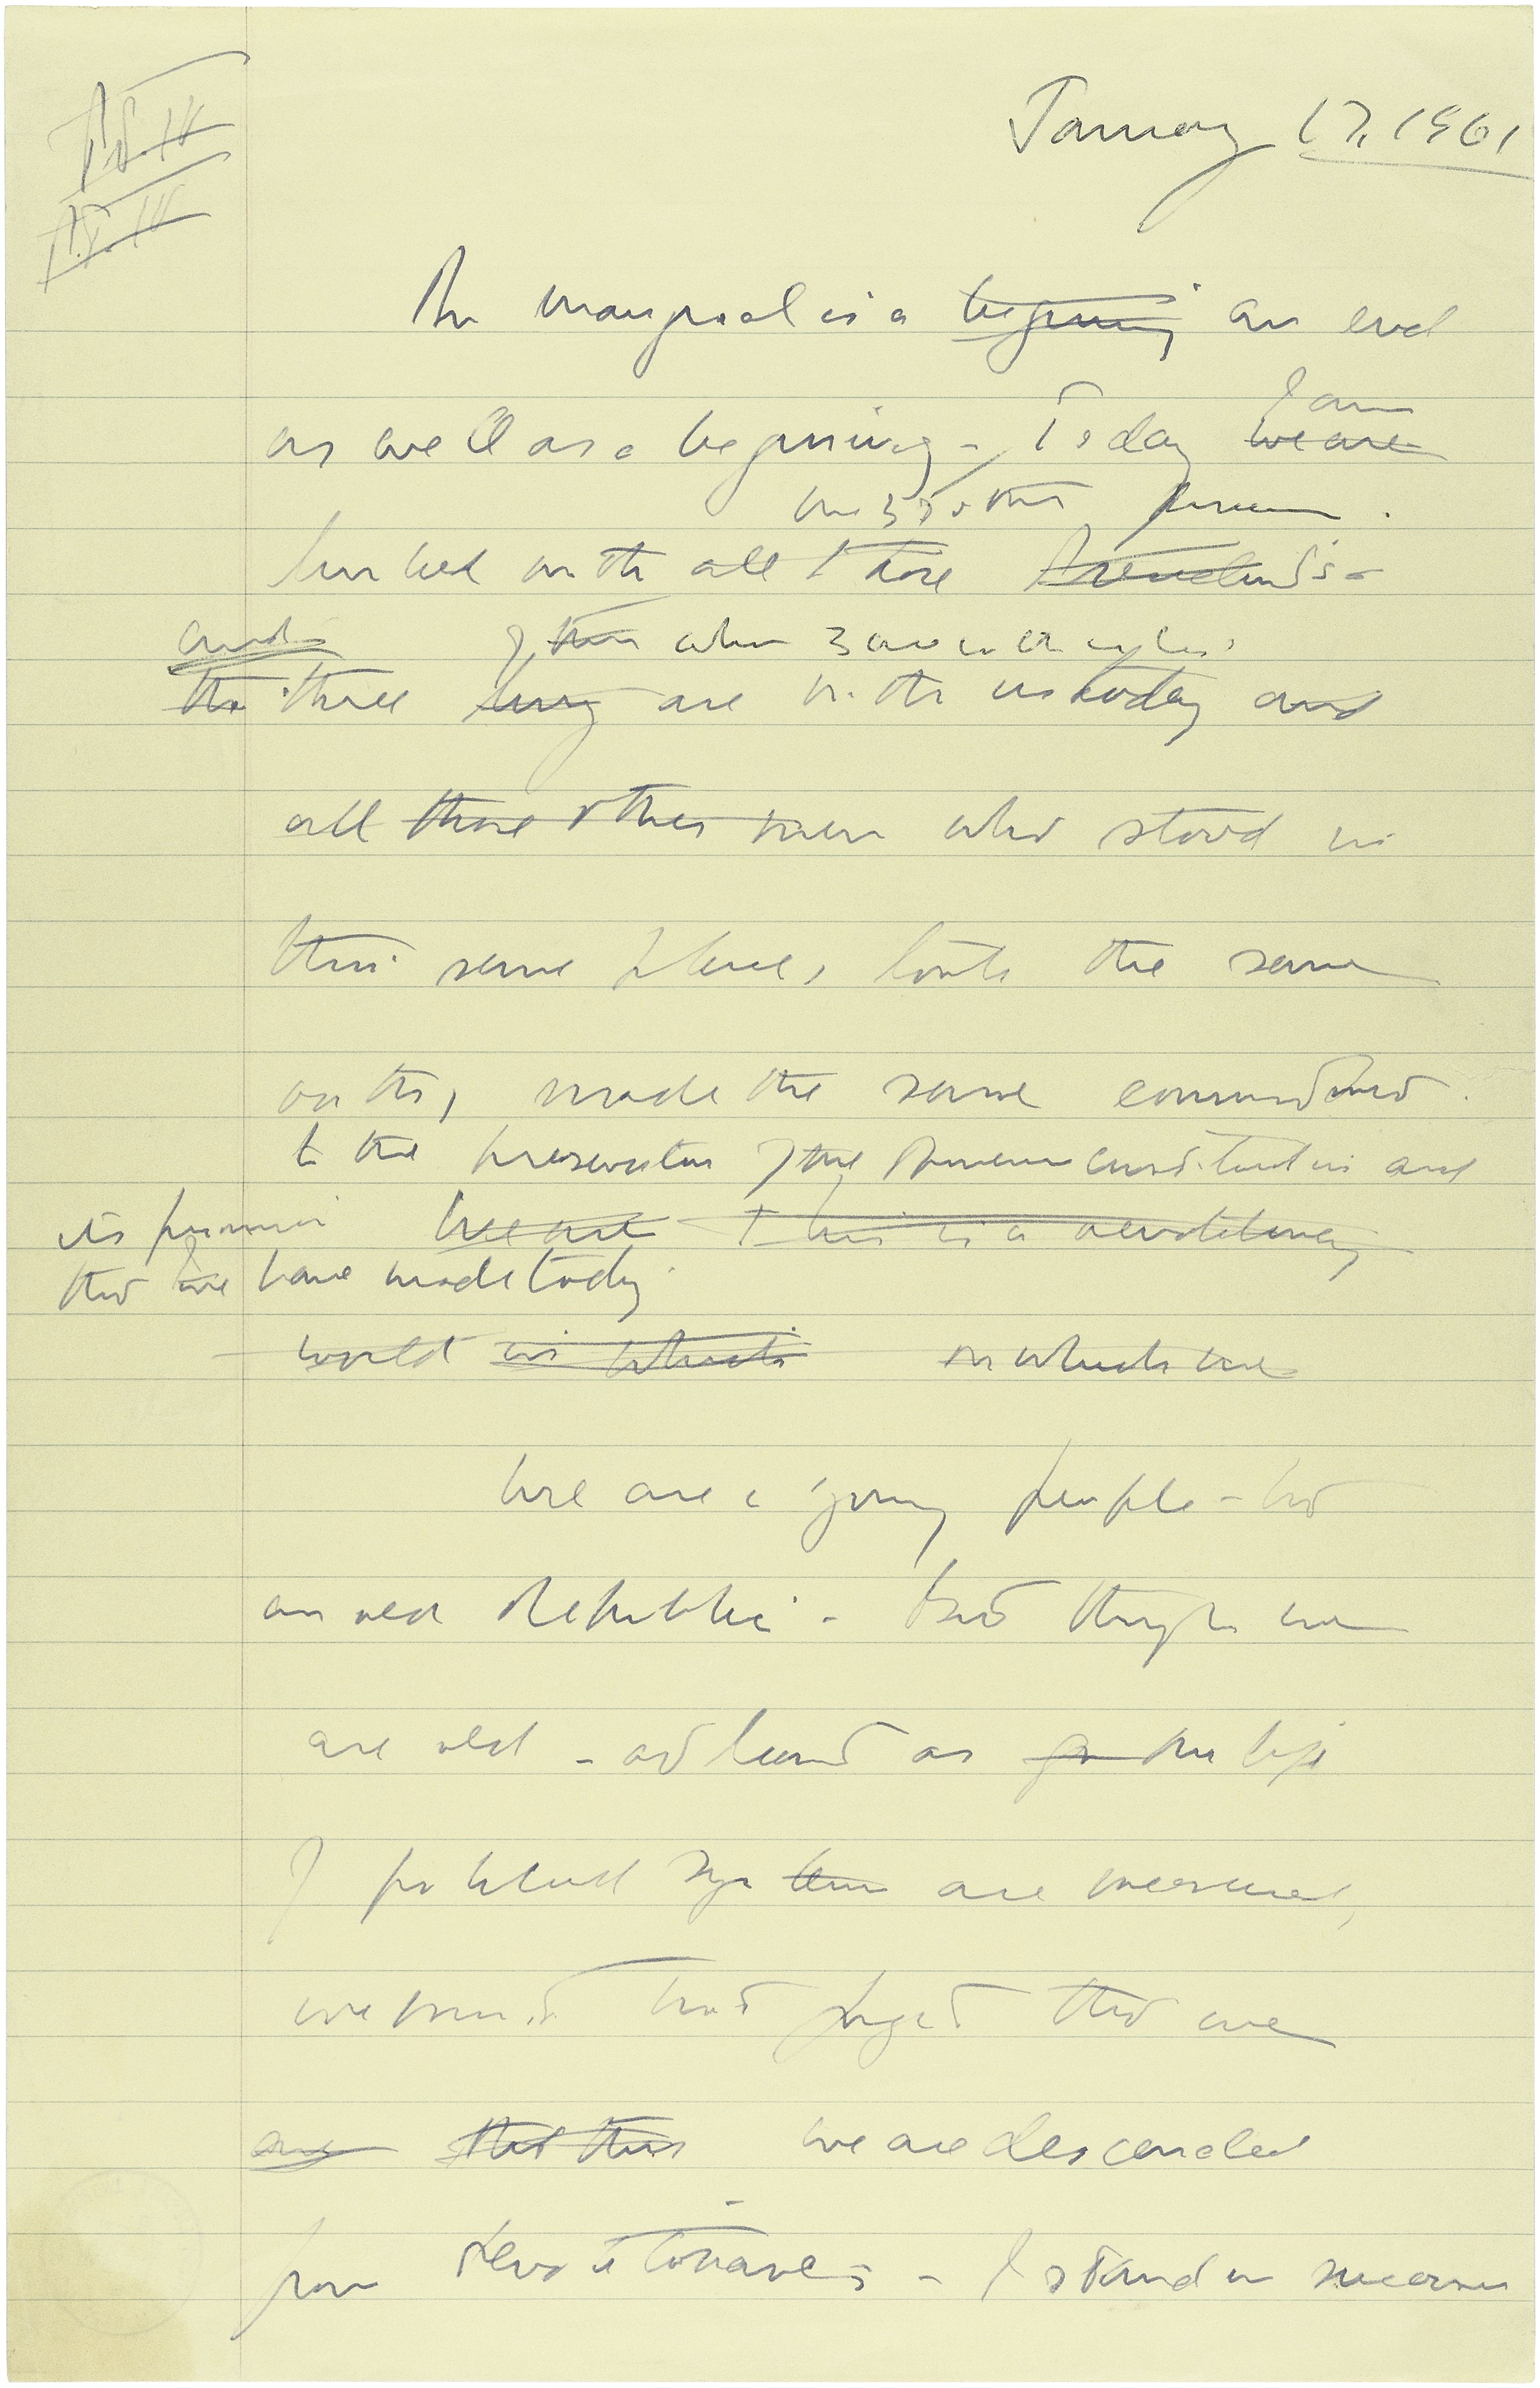 January 17, 1961
An inaugural is a beginning an end
I am
as well as a beginning - Today we are
the 35th
linked with all those
and of who
the three are with us today and
all those other men who stood in
this same place, took the same
oath, made the same commitment
to the preservation of the American constitution and
its promise We are This is a revolutionary
that we have made today
world in which in which we
We are a young people - but
an old Republic - But though we
are old - at least as the life
of political system are measured,
we must not forget that we
are that this we are descended
from Revolutionaries - I stand in